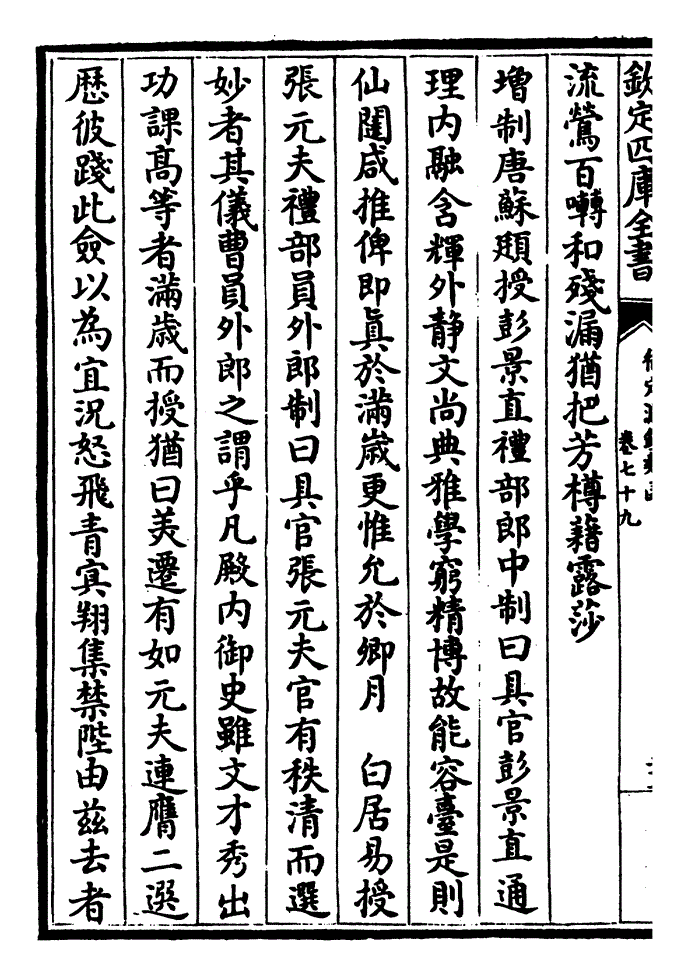 欽定四庫全書
卷七十九
流鶯百囀和殘漏猶把芳樽藉露莎
增制唐蘇頲授彭景直禮部郎中制曰具官彭景直通
理内融含輝外靜文尚典雅學窮精博故能容臺是則
仙闈咸推俾即真於滿歲更惟允於卿月　白居易授
張元夫禮部員外郎制曰具官張元夫官有秩清而選
妙者其儀曹員外郎之謂乎凡殿内御史雖文才秀出
功課髙等者滿歲而授猶曰美遷有如元夫連膺二選
歷彼踐此僉以為宜況怒飛青㝠翔集禁陛由兹去者